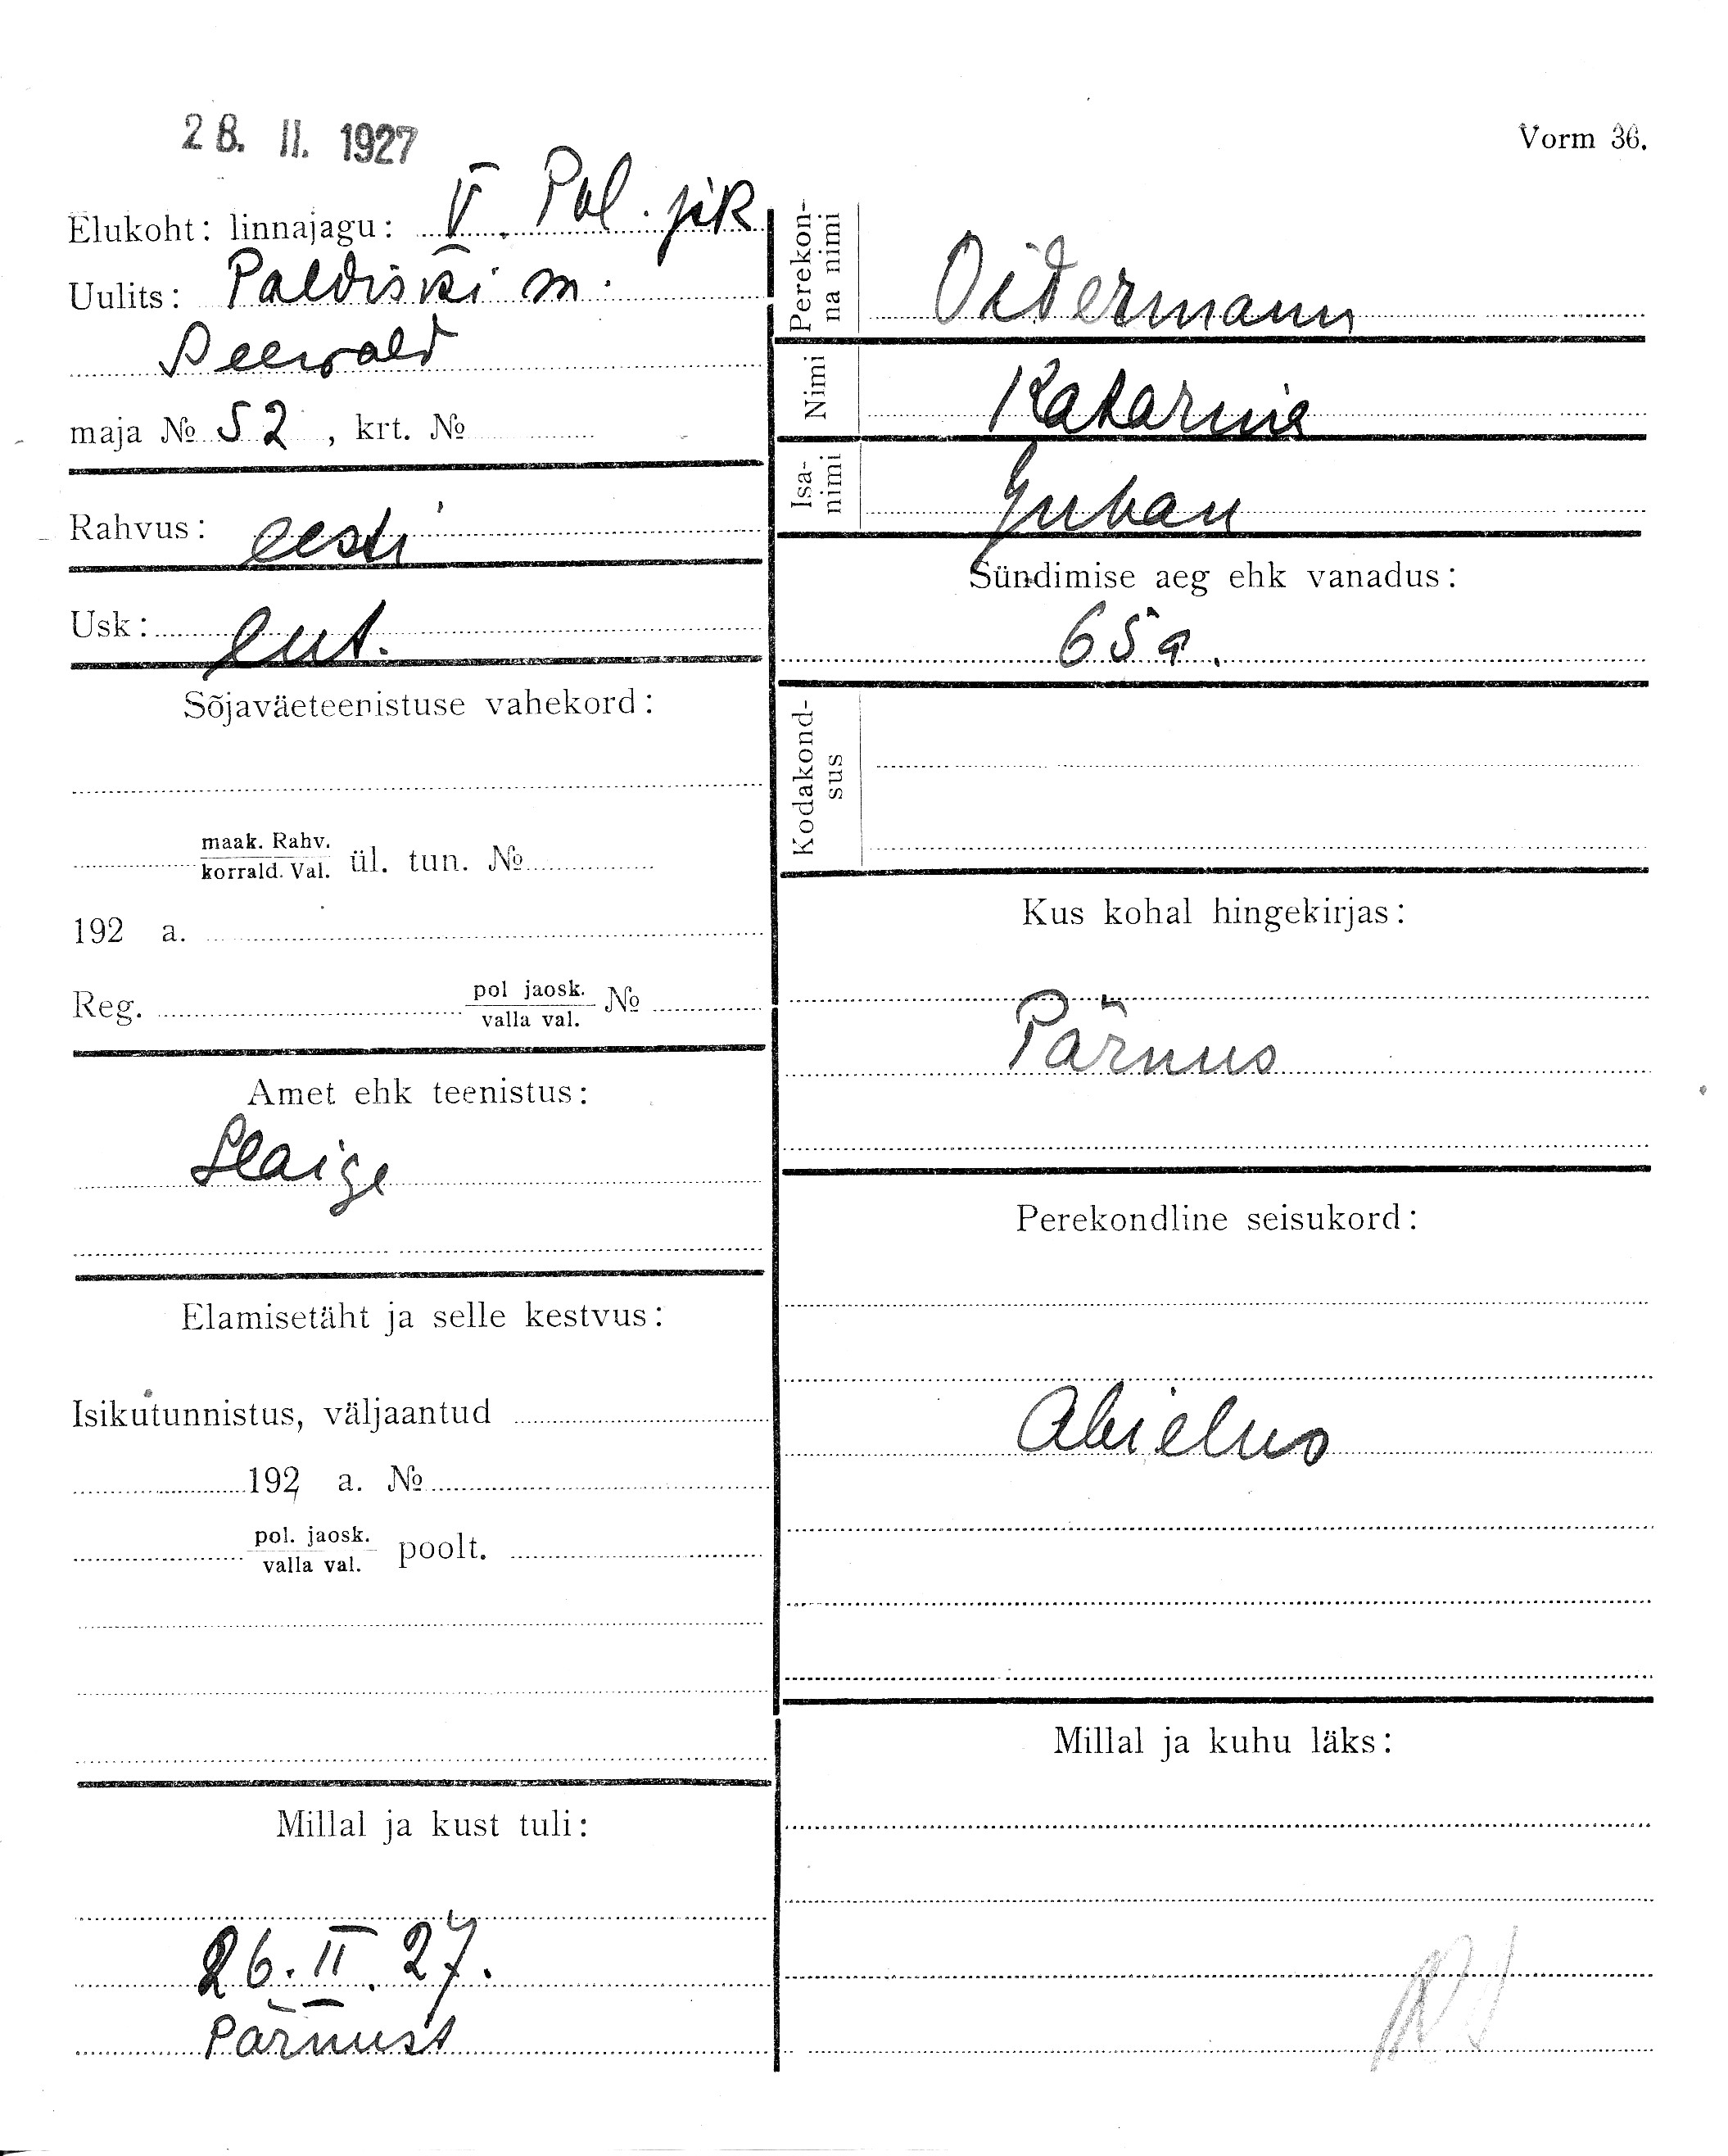 28. II. 1927
Vorm 36.
Elukoht: linnajagu: V. Pol. jsk
Uulits: Paldiski m.
Seewald
maja № 52, krt. №
Rahvus: eesti
Usk: lut.
Sõjaväeteenistuse vahekord:
maak. Rahv.
korrald. Val. ül. tun. №
192 a.
Reg. pol jaosk. №
valla val.
Amet ehk teenistus:
Haige
Elamisetäht ja selle kestvus:
Isikutunnistus, väljaantud
192 a. №
pol. jaosk.
valla val. poolt.
Millal ja kust tuli:
26. II. 27.
Pärnust
Perekon-
na nimi
Oidermann
Nimi Katarina
Isa-
nimi
Juhan
Sündimise aeg ehk vanadus:
65 a.
Kodakond-
sus
Kus kohal hingekirjas:
Pärnus
Perekondline seisukord:
Abielus
Millal ja kuhu läks: